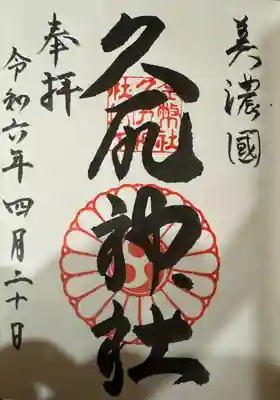 美濃國
久尻神社
幣社
奉拝
令和六年四月二十日